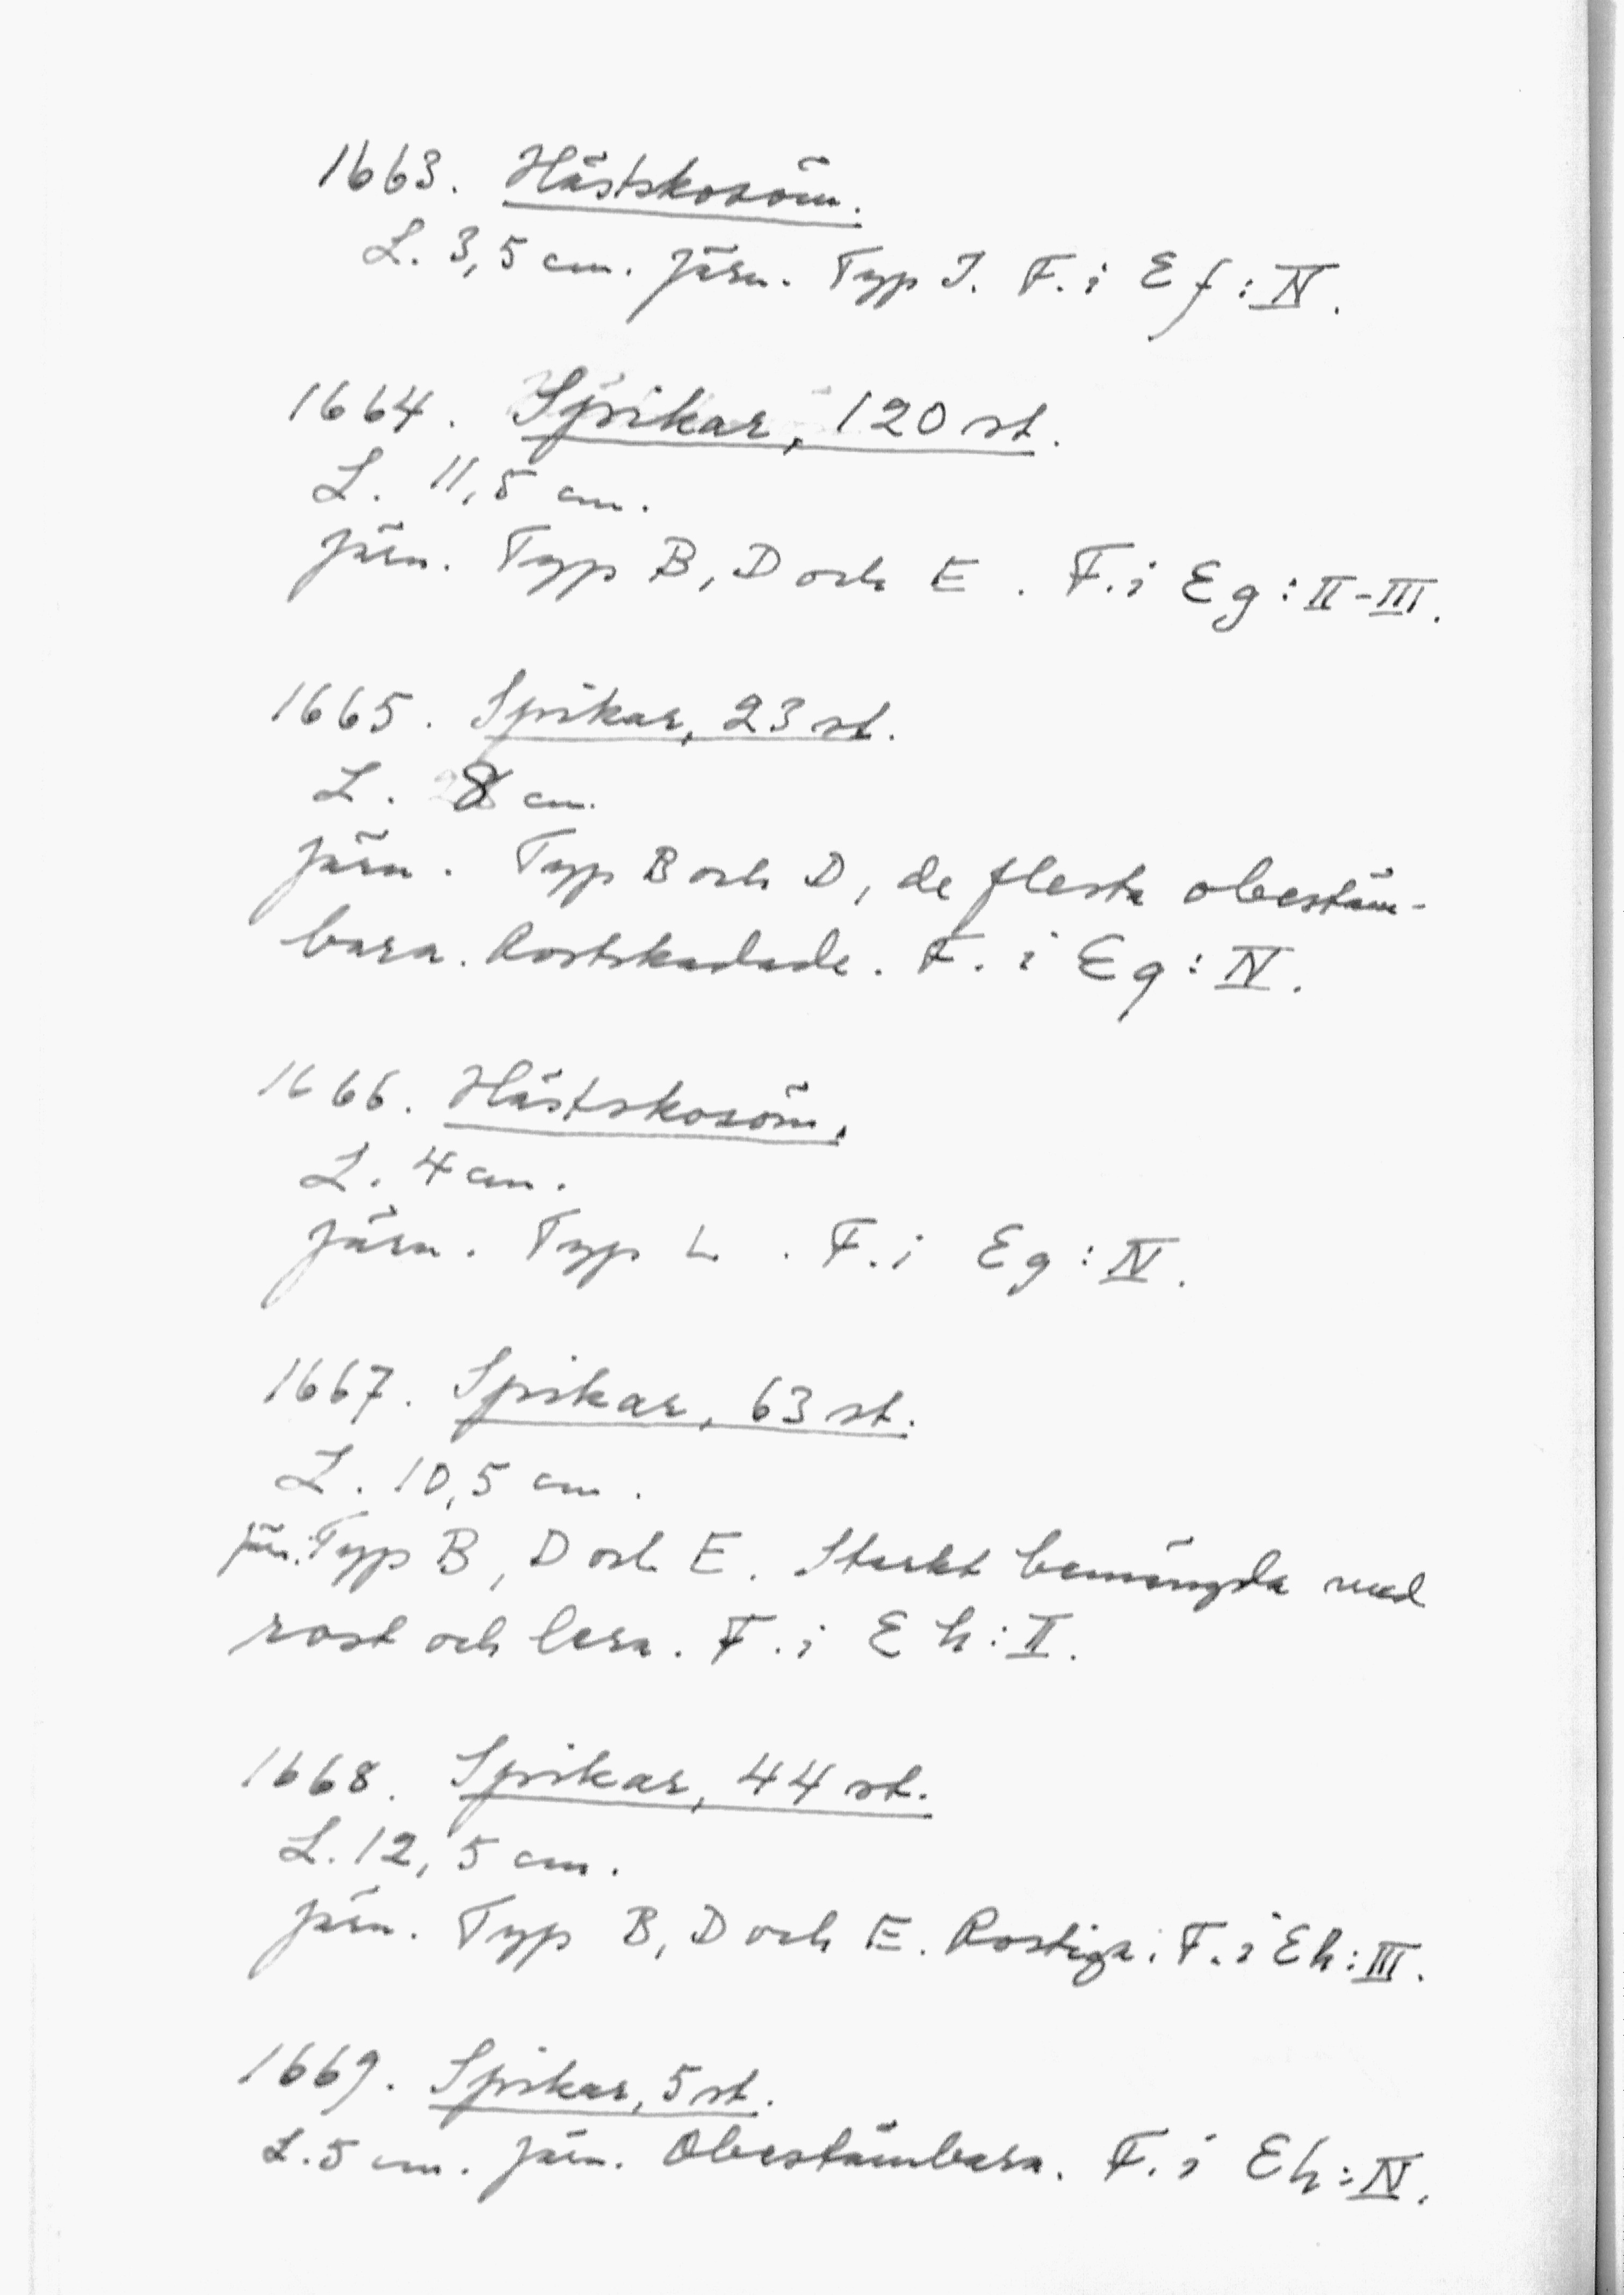 1663. Hästskosöm.
L. 3,5 cm. Järn. Typ J. F. i Ef : IV.
1664. Spikar, 120 st.
L. 11,5 cm.
Järn. Typ B, D och E. F. i Eg : II-III.
1665. Spikar, 23 st.
L. 8 cm.
Järn. Typ B och D, de flesta obestäm-
bara. Rostskadade. F. i Eg : IV.
1666. Hästskosöm.
L. 4 cm.
Järn. Typ L. F. i Eg : IV.
1667. Spikar, 63 st.
L. 10,5 cm.
Järn. Typ B, D och E. Starkt bemängda med
rost och lera. F. i Eh : II.
1668. Spikar, 44 st.
L. 12,5 cm.
Järn. Typ B, D och E. Rostiga. F. i Eh : III.
1669. Spikar, 5 st.
L. 5 cm. Järn. Obestämbara. F. i Eh : IV.